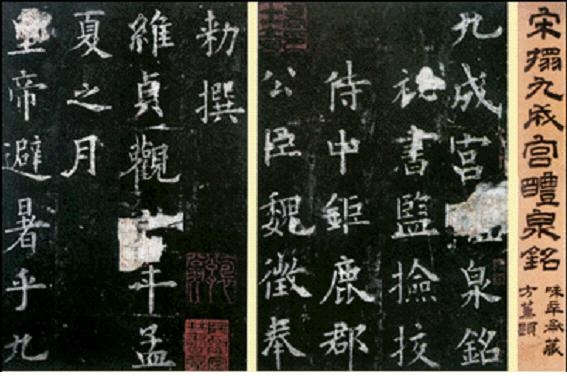 宋搨九成宫醴泉銘
方薰題
九成宮泉銘
祕書監撿挍
侍中鉅鹿郡
公臣魏徵奉
勑撰
維貞觀年孟
夏之月
皇帝避暑乎九